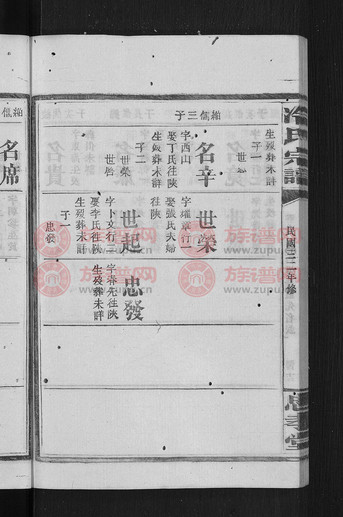 冷氏宗譜
民國三二年修
忠孝堂
生歿葬未詳
子一
世
名辛
字西山
娶丁氏往陝
生歿葬未詳
子二
世榮
世啟
綸儒三子
世榮
字耀章行一
娶張氏夫婦
往陝
世起
字卜文行二
娶李氏往陝
生歿葬未詳
子一
忠發
忠發
往陝
生歿葬未詳
名席
族谱网
www.zupu.cn